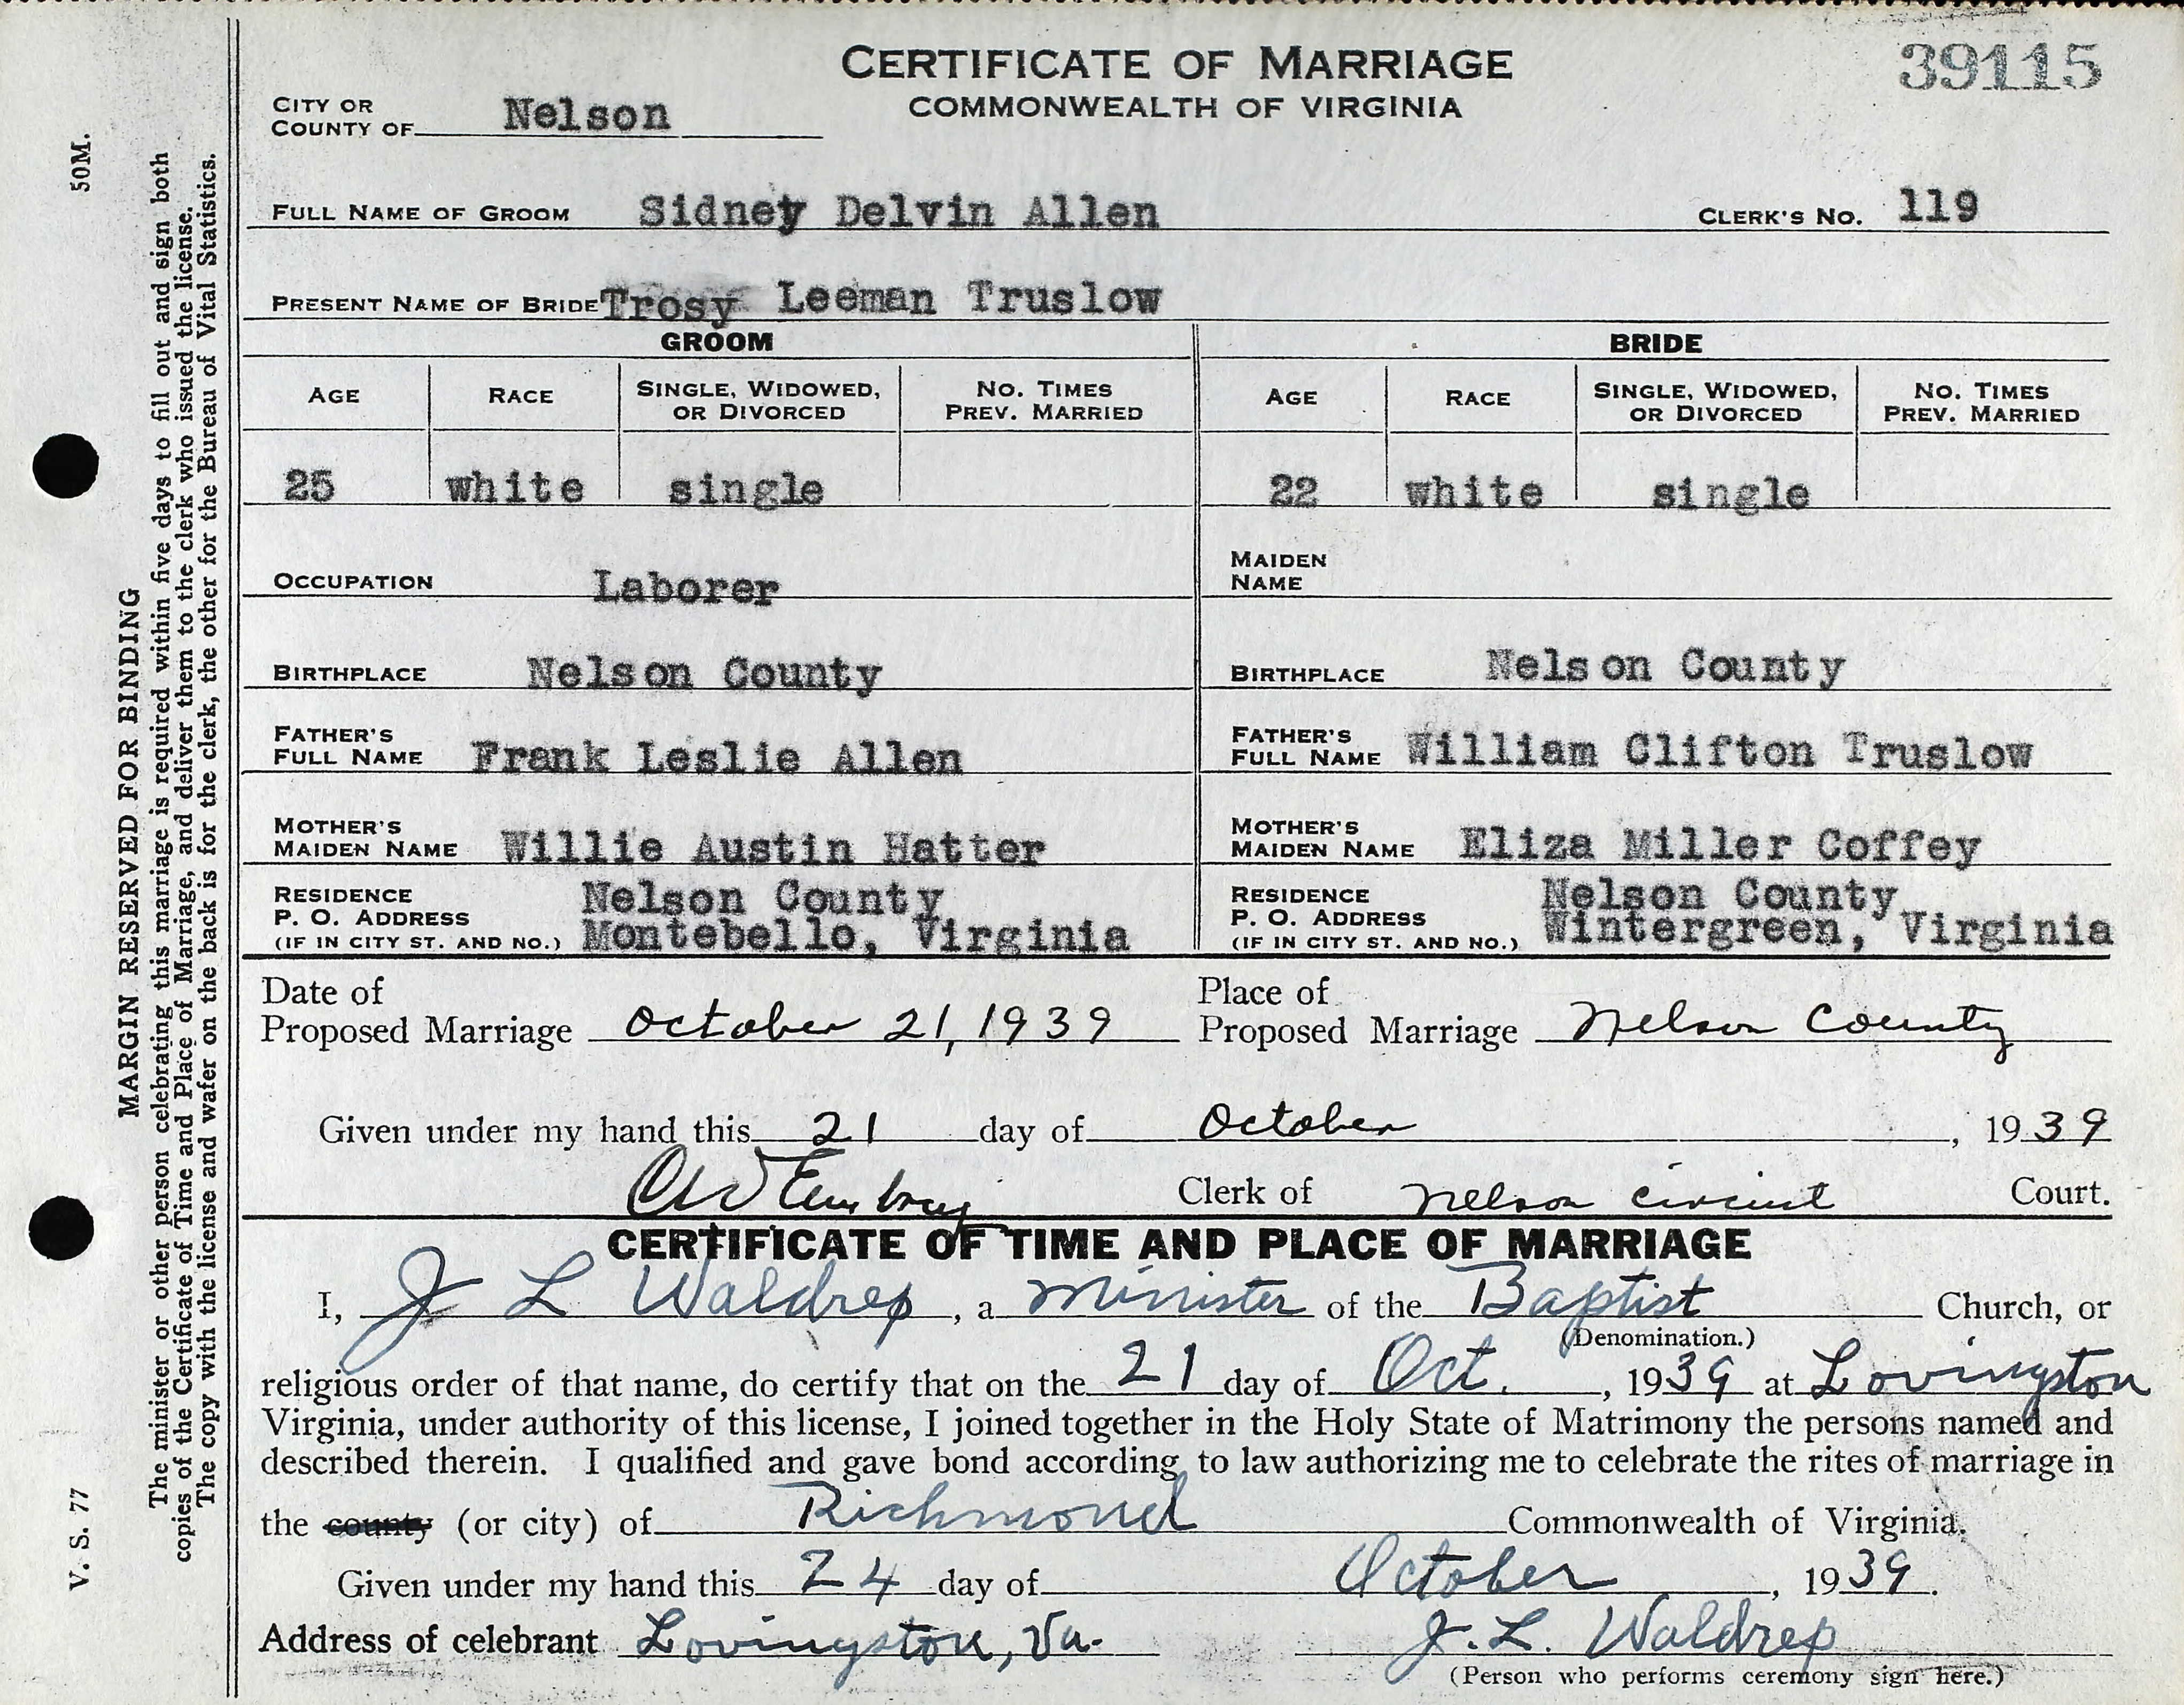 CERTIFICATE OF MARRIAGE
39115
COMMONWEALTH OF VIRGINIA
CITY OR COUNTY OF Nelson
FULL NAME OF GROOM Sidney Delvin Allen CLERK'S NO. 119
PRESENT NAME OF BRIDE Trosy Leeman Truslow
GROOM BRIDE
AGE RACE SINGLE, WIDOWED, OR DIVORCED NO. TIMES PREV. MARRIED AGE RACE SINGLE, WIDOWED, OR DIVORCED NO. TIMES PREV. MARRIED
25 white single 22 white single
OCCUPATION Laborer MAIDEN NAME
BIRTHPLACE Nelson County BIRTHPLACE Nelson County
FATHER'S FULL NAME Frank Leslie Allen FATHER'S FULL NAME William Clifton Truslow
MOTHER'S MAIDEN NAME Willie Austin Hatter MOTHER'S MAIDEN NAME Eliza Miller Coffey
RESIDENCE Nelson County RESIDENCE Nelson County
P. O. ADDRESS Montebello, Virginia P. O. ADDRESS Wintergreen, Virginia
(IF IN CITY ST. AND NO.) (IF IN CITY ST. AND NO.)
Date of Proposed Marriage October 21, 1939 Place of Proposed Marriage Nelson County
Given under my hand this 21 day of October, 1939
Embrey Clerk of Nelson Circuit Court.
CERTIFICATE OF TIME AND PLACE OF MARRIAGE
I, J L Waldrep, a Minister of the Baptist Church, or
(Denomination.)
religious order of that name, do certify that on the 21 day of Oct., 1939 at Lovingston
Virginia, under authority of this license, I joined together in the Holy State of Matrimony the persons named and
described therein. I qualified and gave bond according to law authorizing me to celebrate the rites of marriage in
the county (or city) of Richmond Commonwealth of Virginia.
Given under my hand this 24 day of October, 1939.
Address of celebrant Lovingston, Va. J. L. Waldrep
(Person who performs ceremony sign here.)
V. S. 77 50M.
MARGIN RESERVED FOR BINDING
The minister or other person celebrating this marriage is required within five days to fill out and sign both
copies of the Certificate of Time and Place of Marriage, and deliver them to the clerk who issued the license.
The copy with the license and wafer on the back is for the clerk, the other for the Bureau of Vital Statistics.